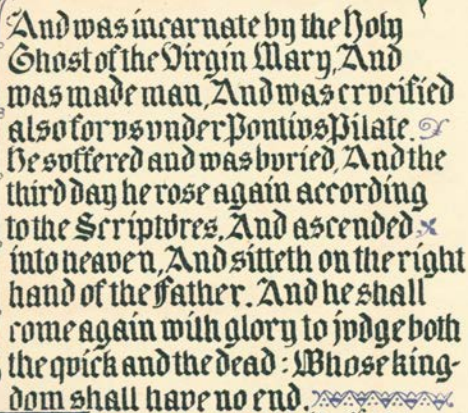 And was incarnate by the Holy
Ghost of the Virgin Mary, And
was made man, And was crvcified
also for vs vnder Pontivs Pilate.
He svffered and was bvried, And the
third day he rose again according
to the Scriptvres, And ascended
into heaven, And sitteth on the right
hand of the Father. And he shall
come again with glory to jvdge both
the qvick and the dead: Whose king-
dom shall have no end.